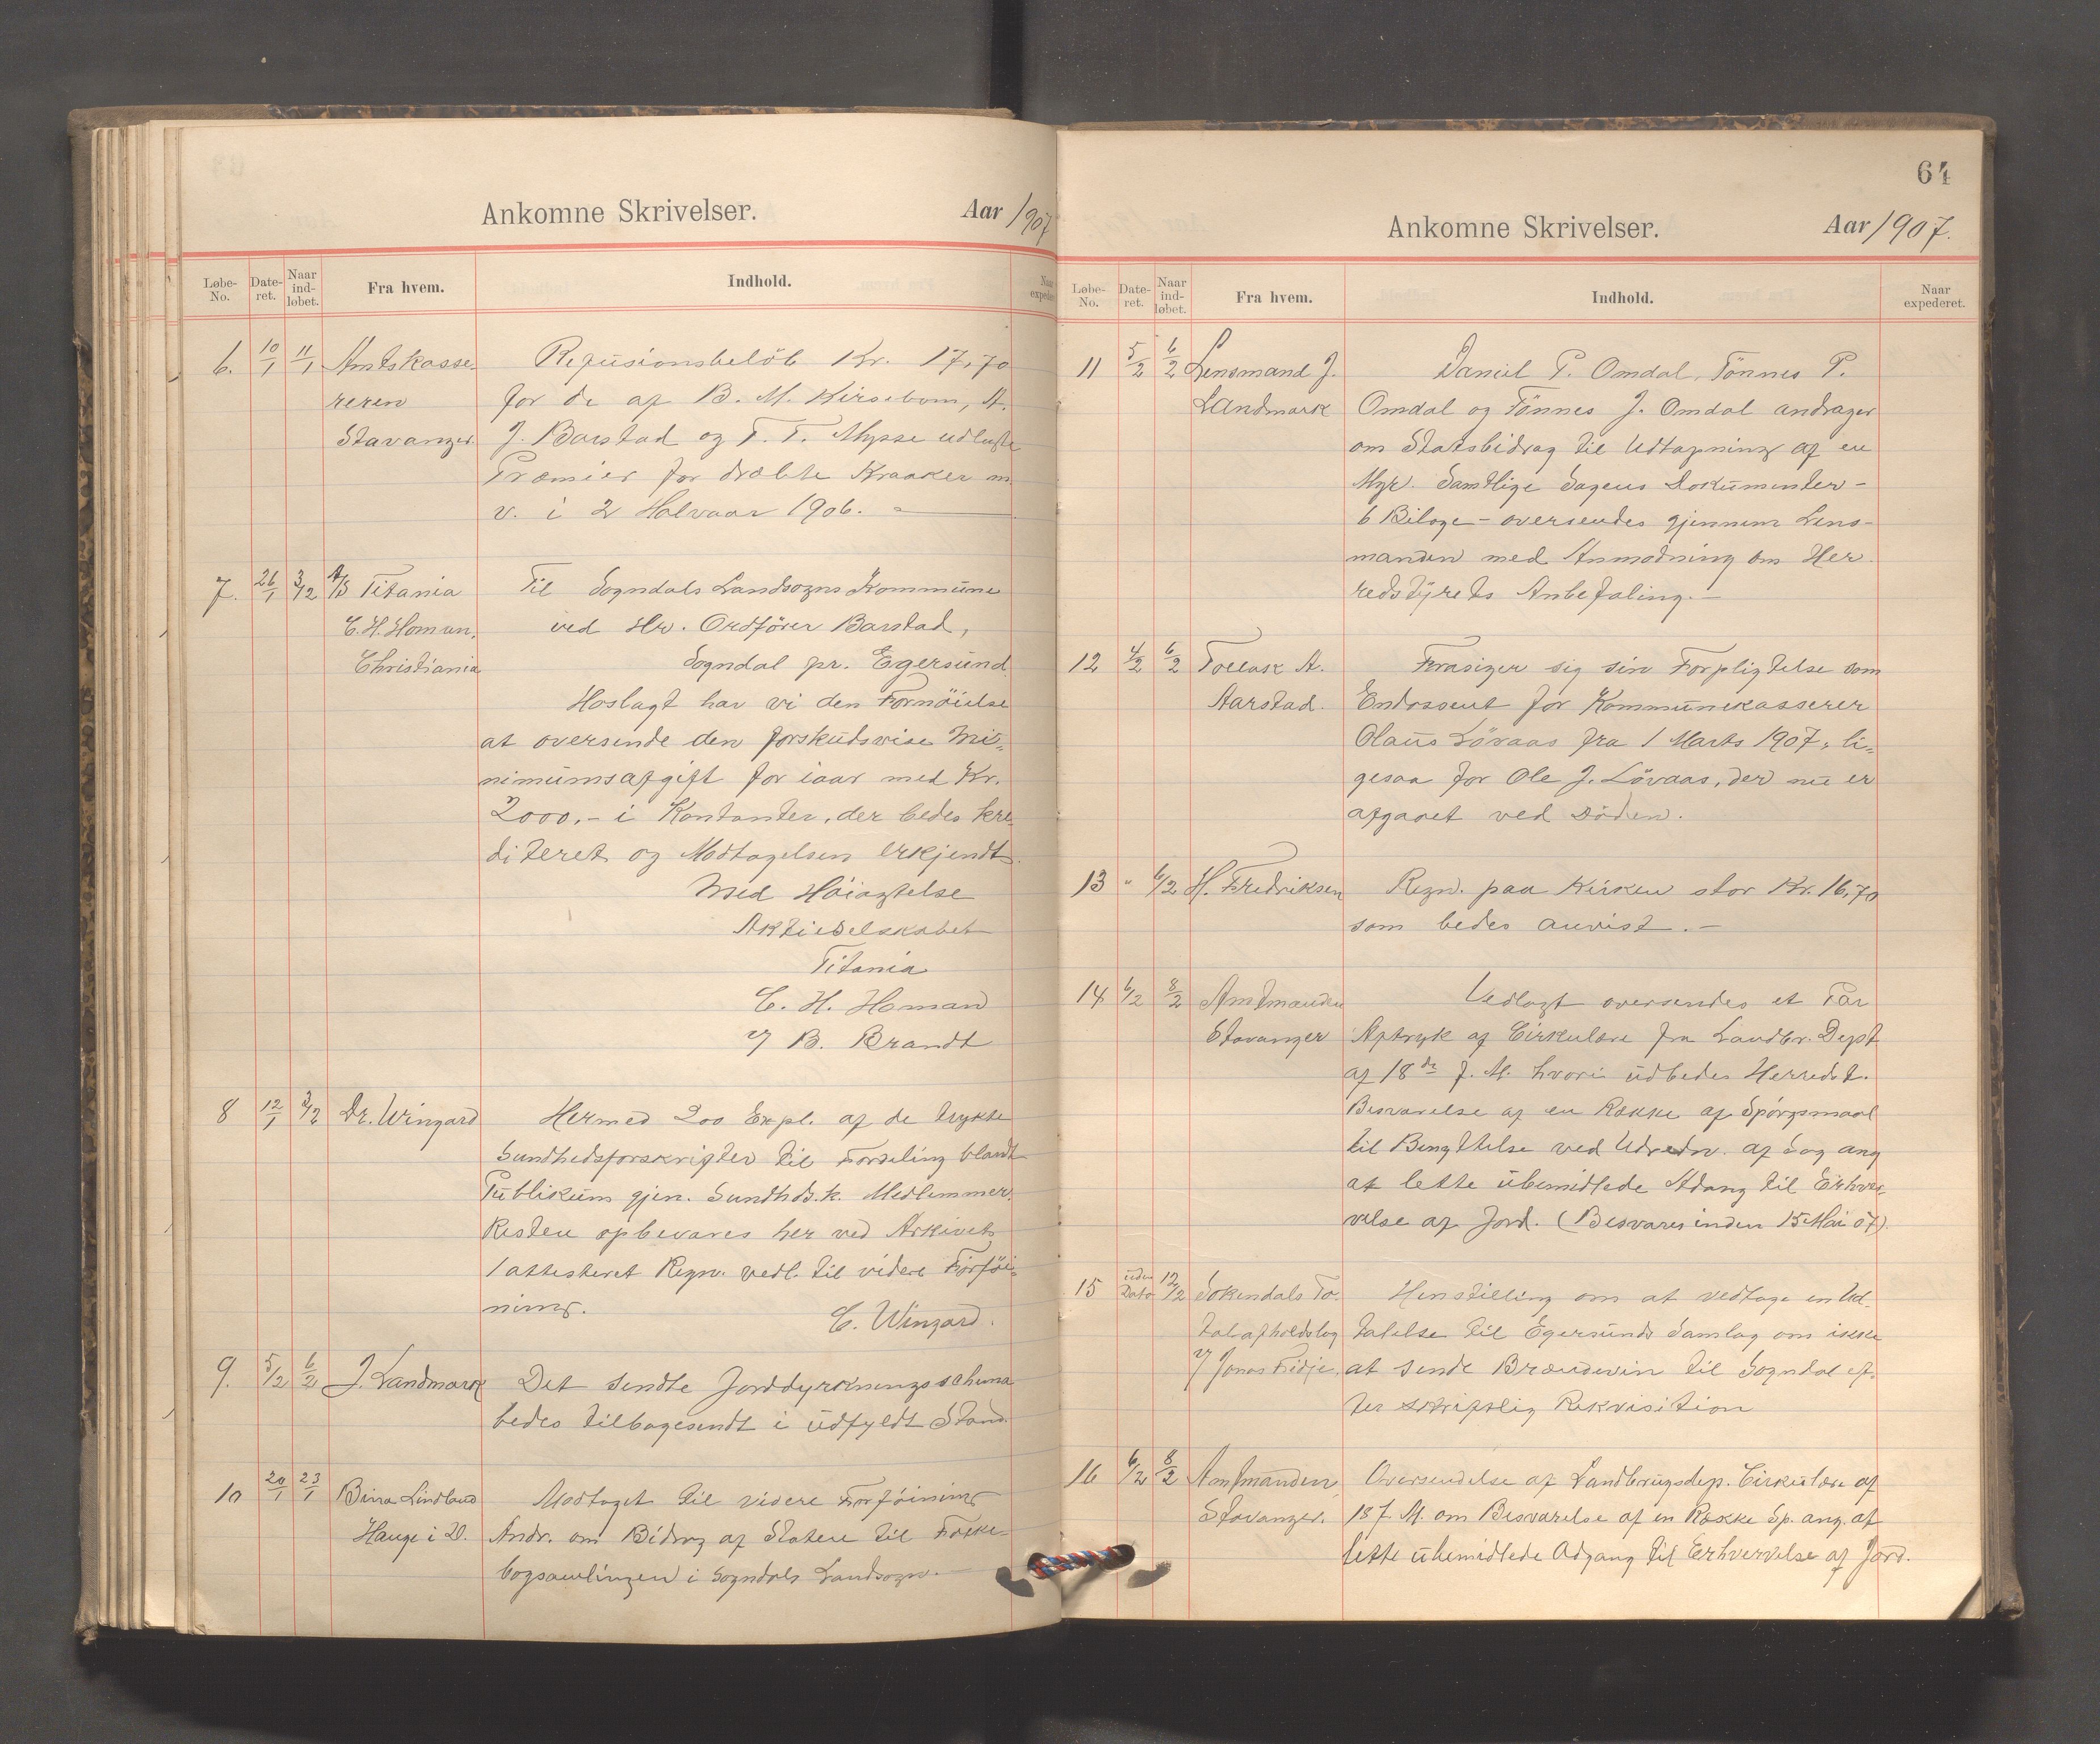 Ankomne Skrivelser.
Aar 1907
Løbe-No. Dateret. Naar indløbet. Fra hvem. Indhold. Naar expede
6. 10/1 11/1 Amtskasse-
reren
Stavanger.
Refusionsbelöb Kr. 17,70
for de af B. M. Kirsebom, A.
J. Barstad og T. T. Mysse udlagte
Præmier for dræbte Kraaker m.
v. i 2 Halvaar 1906. –
7. 26/1 3/2 A/S Titania
C. H. Homan,
Christiania
Til Sogndals Landsogns Kommune
ved Hr. Ordförer Barstad,
Sogndal pr. Egersund.
Hoslagt har vi den Fornöielse
at oversende den forskudsvise Mi-
nimumsafgift for iaar med Kr.
2000.- i Kontanter, der bedes kre-
diteret og Modtagelsen erkjendt.
Med Höiagtelse
Aktieselskabet
Titania
C. H. Homan
v/ B. Brandt
8 12/1 3/2 Dr. Wingard
Hermed 200 Expl. af de trykte
Sundhedsforskrifter til Fordeling blandt
Publikum gjen. Sundhds.k. Medlemmer.
Resten opbevares her ved Arkivet.
1 attesteret Regn. vedl. til videre Forföi-
ning.
C. Wingard.
9. 5/2 6/2 J. Landmark
Det sendte Jorddyrkningsschema
bedes tilbagesendt i udfyldt Stand.
10 20/1 23/1 Birra Lindland
Hauge i D.
Modtaget til videre Forföining
Andr. om Bidrag af Staten til Folke-
bogsamlingen i Sogndals Landsogn. –
64
Ankomne Skrivelser.
Aar 1907.
Løbe-No. Dateret. Naar indløbet. Fra hvem. Indhold. Naar expederet.
11 5/2 6/2 Lensmand J.
Landmark
Daniel P. Omdal, Tönnes P.
Omdal og Tönnes J. Omdal andrager
om Statsbidrag til Udtapning af en
Myr. Samtlige Sagens Dokumenter -
6 Bilage - oversendes gjennem Lens-
manden med Anmodning om Her-
redstyrets Anbefaling. –
12 4/2 6/2 Tollak A.
Aarstad.
Frasiger sig sin Forpligtelse som
Endossent for Kommunekasserer
Olaus Lövaas fra 1 Marts 1907, li-
gesaa for Ole J. Lövaas, der nu er
afgaaet ved Döden.
13 " 6/2 H. Fredriksen
Regn. paa Kirken stor Kr. 16,70
som bedes anvist. –
14 6/2 8/2 Amtmanden
Stavanger
Vedlagt oversendes et Par
Aftryk af Cirkulære fra Landbr. Dept
af 18de f. M. hvori udbedes Herredst.
Besvarelse af en Række af Spörgsmaal
til Benyttelse ved Udredn. af Sag ang
at lette ubemidlede Adang til Erhver-
velse af Jord. (Besvares inden 15 Mai 07).
15 uden Dato 12/2 Sokendals To-
talafholdslag
v/ Jonas Fidje,
Henstilling om at vedtage en Ud-
talelse til Egersunds Samlag om ikke
at sende Brændevin til Sogndal ef-
ter skriftlig Rekvisition
16 6/2 8/2 Amtmanden,
Stavanger.
Oversendelse af Landbrugsdep. Cirkulære af
18 f. M. om Besvarelse af en Række Sp. ang. at
lette ubemidlede Adgang til Erhvervelse af Jord.